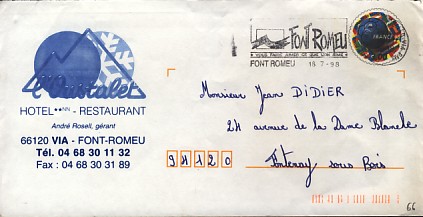 l'Oustalet
HOTEL**NN - RESTAURANT
André Rosell, gérant
66120 VIA - FONT-ROMEU
Tél. 04 68 30 11 32
Fax : 04 68 30 31 89
FONT ROMEU
FONT ROMEU 16-7-98
FRANCE
Monsieur Jean DIDIER
24 avenue de la Dame Blanche
94120 Fontenay sous Bois
66